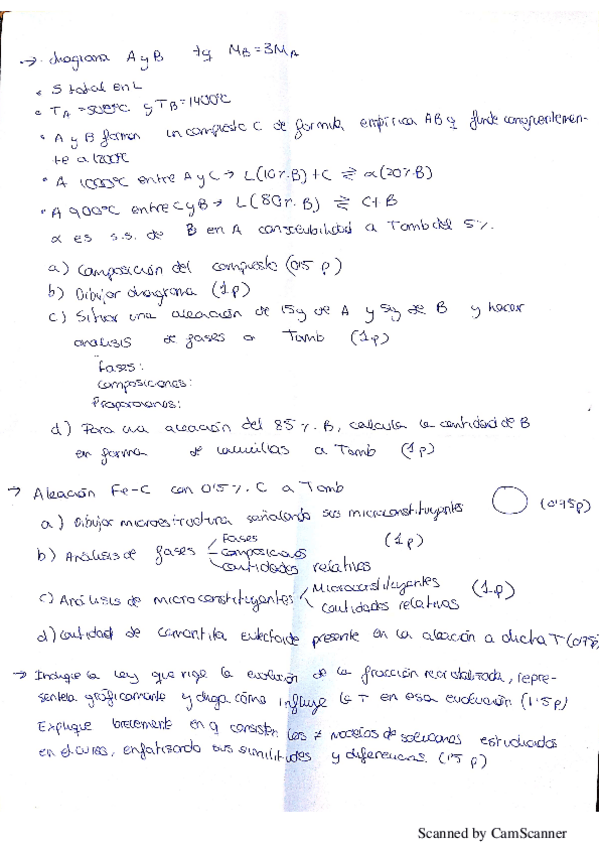 → diagrama A y B tq MB = 3MA
• S total en L
• TA = 500ºC y TB = 1400ºC
• A y B forman un compuesto C de formula empírica AB2 y funde congruentemen-
te a 1200ºC
• A 1000ºC entre A y C → L(10%.B) + C ⇄ α(20%.B)
• A 900ºC entre C y B → L(80%.B) ⇄ C + B
α es s.s. de B en A con solubilidad a Tamb del 5%.
a) Composición del compuesto (0'5 p)
b) Dibujar diagrama (1p)
c) Situar una aleación de 15g de A y 5g de B y hacer
análisis de fases a Tamb (1p)
Fases:
Composiciones:
Proporciones:
d) Para una aleación del 85%.B, calcula la cantidad de B
en forma de laminillas a Tamb (1p)
→ Aleación Fe-C con 0'5%.C a Tamb
a) Dibujar microestructura señalando sus microconstituyentes (0'75p)
b) Análisis de fases Fases (1p)
composiciones
cantidades relativas
c) Análisis de microconstituyentes Microconstituyentes (1p)
cantidades relativas
d) Cantidad de cementita eutectoide presente en la aleación a dicha T (0'75)
→ Indique la ley que rige la evolución de la fracción recristalizada, repre-
sentela gráficamente y diga cómo influye la T en esa evolución (1'5p)
Explique brevemente en q consisten los ≠ modelos de soluciones estudiados
en el curso, enfatizando sus similitudes y diferencias. (1'5 p)
Scanned by CamScanner